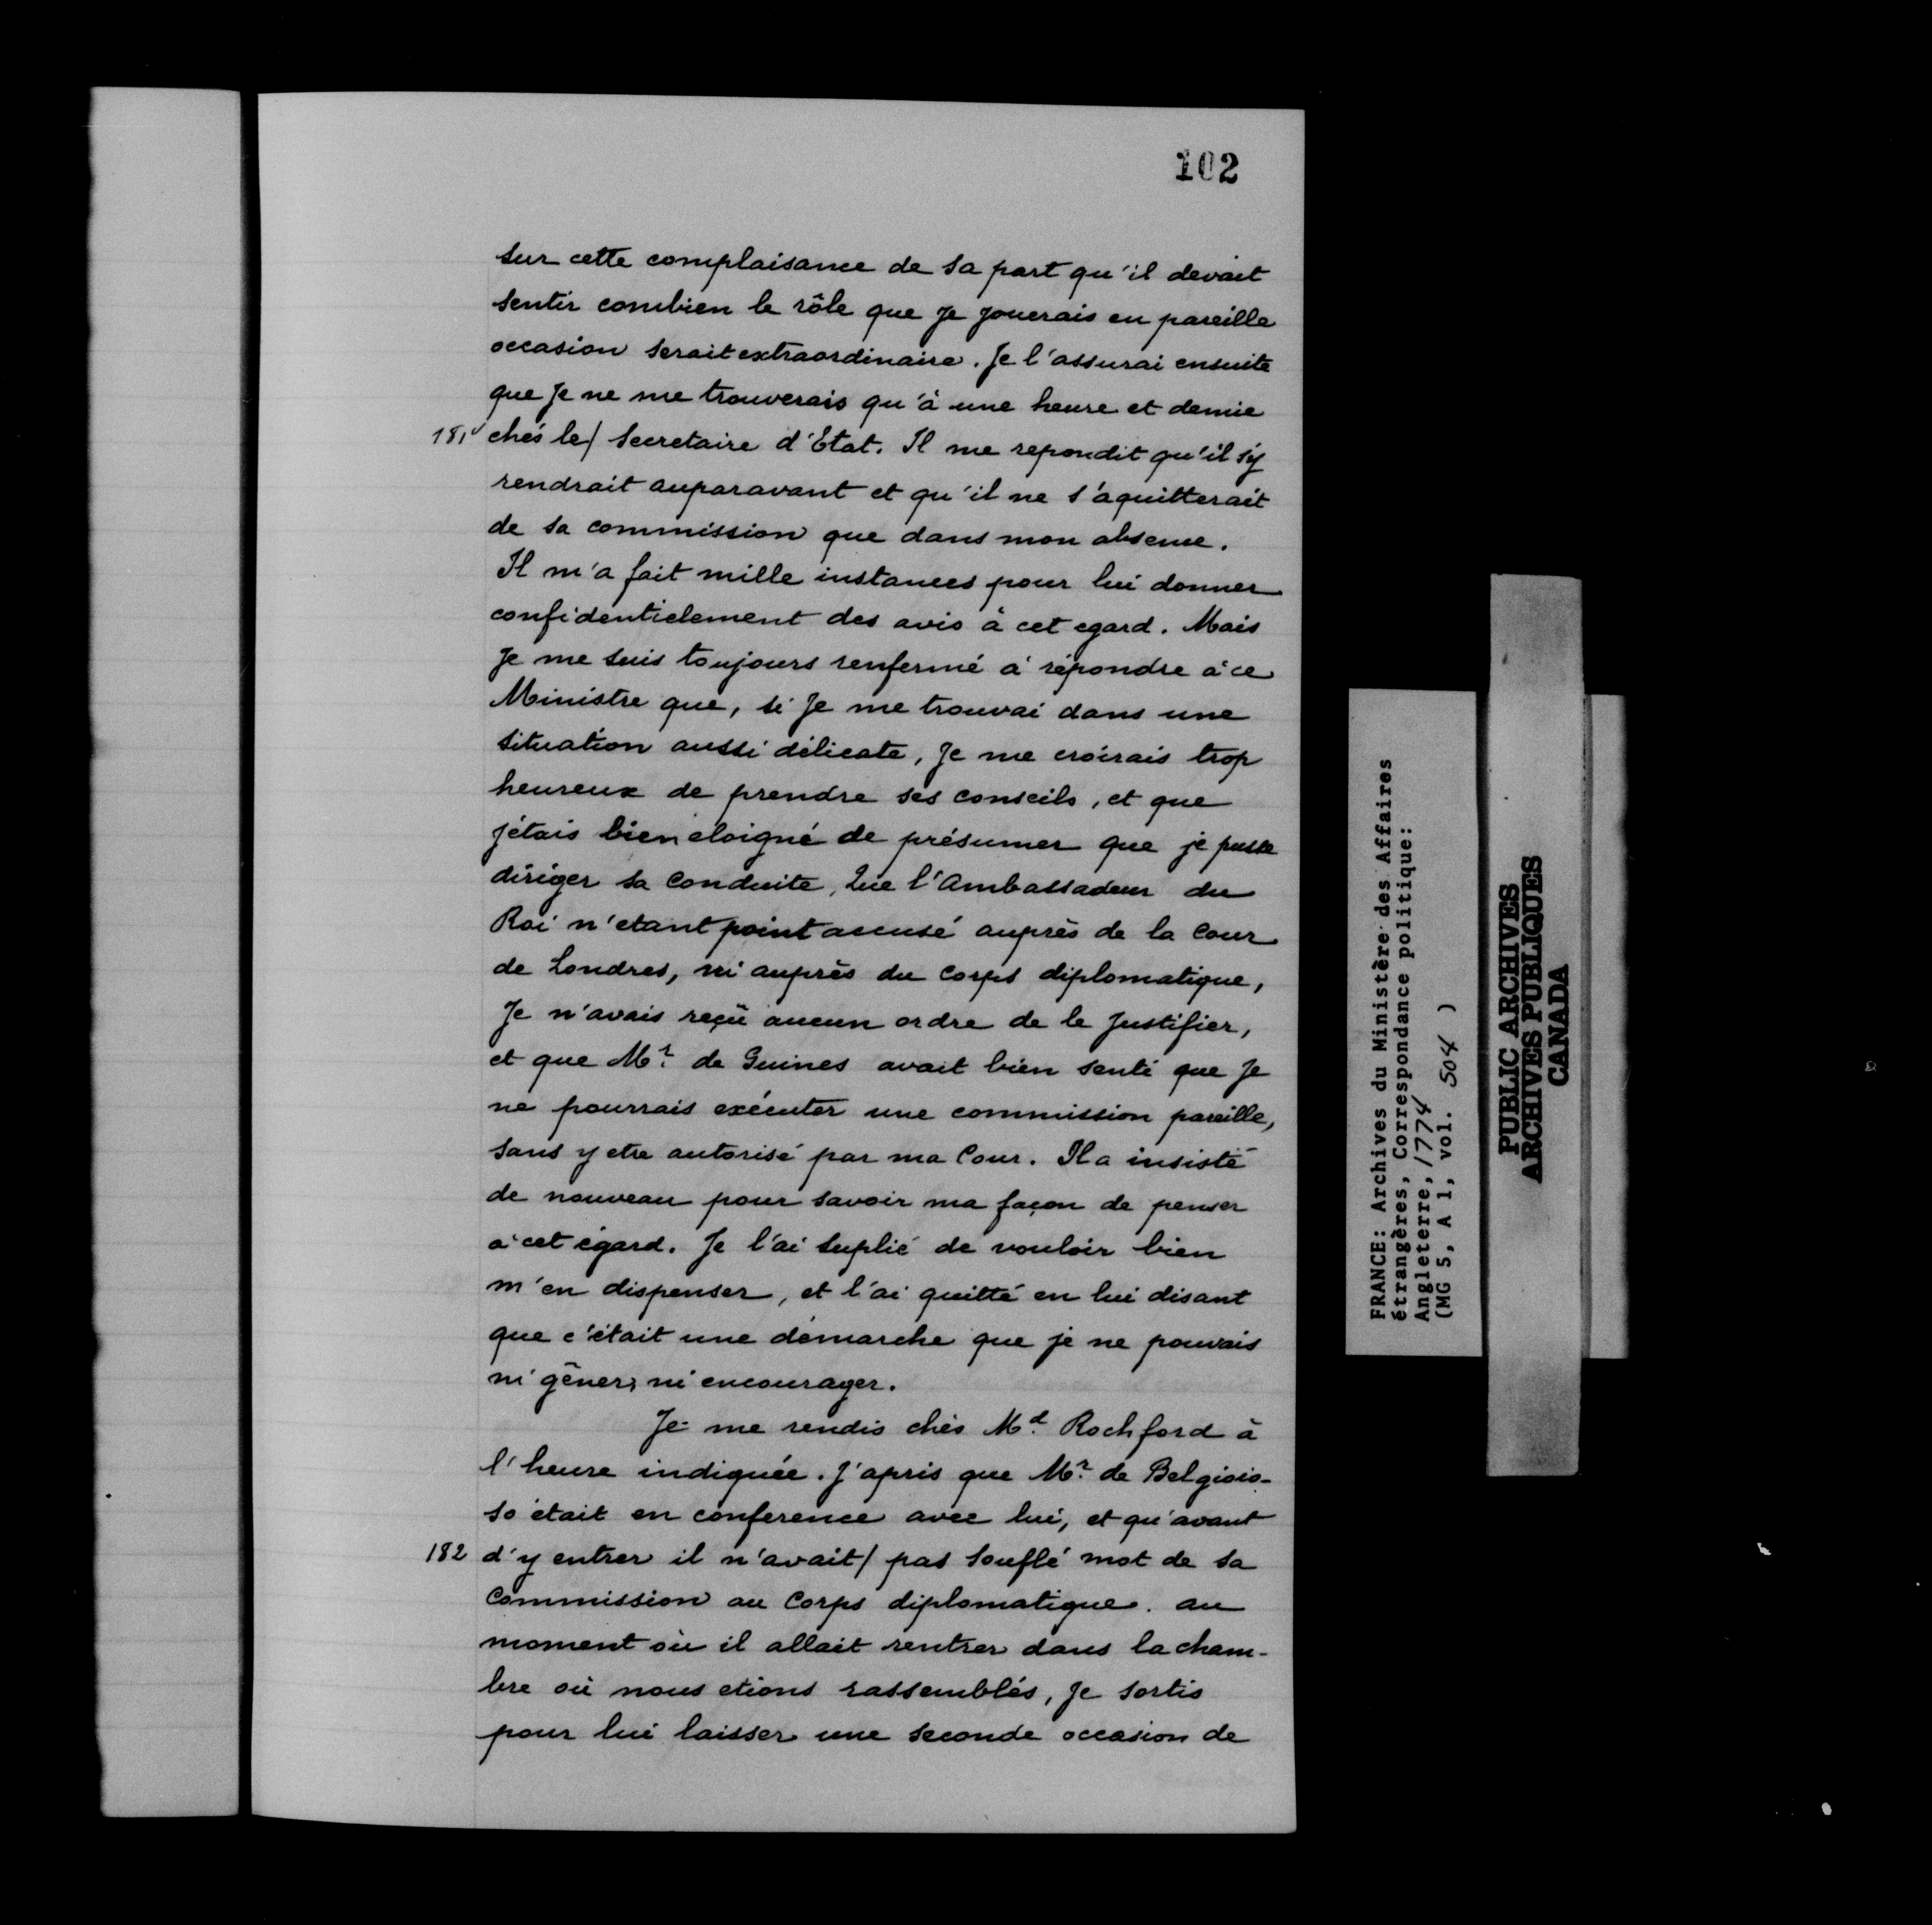 102
sur cette complaisance de sa part qu'il devait
sentir combien le rôle que Je jouerais en pareille
occasion serait extraordinaire. Je l'assurai ensuite
que Je ne me trouverais qu'à une heure et demie
181v chés le/ Secretaire d'Etat. Il me repondit qu'il s'y
rendrait auparavant et qu'il ne s'aquitterait
de sa commission que dans mon absence.
Il m'a fait mille instances pour lui donner
confidentielement des avis à cet egard. Mais
Je me suis toujours renfermé à répondre à ce
Ministre que, si Je me trouvai dans une
situation aussi délicate, Je me croirais trop
heureux de prendre ses conseils, et que
j'étais bien eloigné de présumer que je pusse
diriger sa conduite, Que l'Ambassadeur du
Roi n'etant point accusé auprès de la Cour
de Londres, ni auprès du Corps diplomatique,
Je n'avais reçû aucun ordre de le Justifier,
et que Mr. de Guines avait bien senti que Je
ne pourrais exécuter une commission pareille,
sans y etre autorisé par ma Cour. Il a insisté
de nouveau pour savoir ma façon de penser
à cet égard. Je l'ai suplié de vouloir bien
m'en dispenser, et l'ai quitté en lui disant
que c'était une démarche que je ne pouvais
ni gêner, ni encourager.
Je me rendis chés Md. Rochford à
l'heure indiquée. J'apris que Mr. de Belgiois-
so était en conference avec lui, et qu'avant
182 d'y entrer il n'avait/ pas souflé mot de sa
Commission au Corps diplomatique. au
moment où il allait rentrer dans la cham-
bre où nous etions rassemblés, Je sortis
pour lui laisser une seconde occasion de
FRANCE: Archives du Ministère des Affaires
étrangères, Correspondance politique:
Angleterre, 1774
(MG 5, A 1, vol. 504 )
PUBLIC ARCHIVES
ARCHIVES PUBLIQUES
CANADA